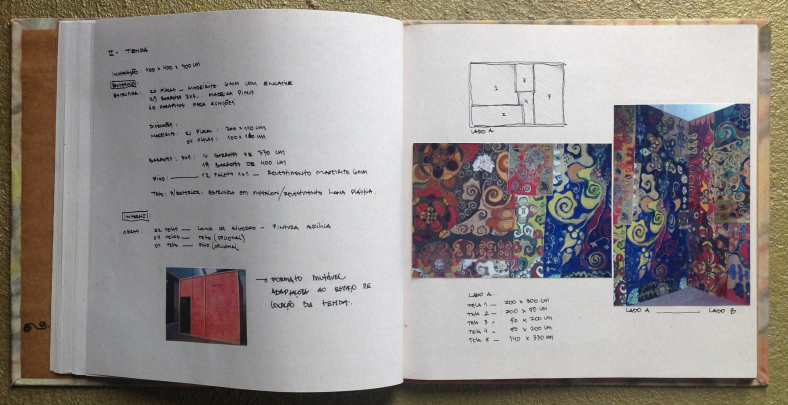 II - TENDA
INSTALAÇÃO: 400 x 400 x 300 cm
EXTERNO
ESTRUTURA: 22 PLACAS - MADEIRITE 6MM COM ENCAIXE
23 BARROTES 3x5. MADEIRA PINUS
60 PARAFUSOS PARA JUNÇÕES
DIMENSÕES:
MADEIRITE: 21 PLACAS: 200 x 110 cm
01 PLACAS: 100 x cm
BARROTES: 3x5: 4 BARROTES DE 330 cm
19 BARROTES DE 400 cm
PISO: 12 PALETS 1x1 - REVESTIMENTO MADEIRITE 6MM
TETO: ESTRUTURA EM METALON/REVESTIMENTO LONA PLÁSTICA.
INTERNO:
OBRAS: 22 TELAS - LONA DE ALGODÃO - PINTURA ACRÍLICA
04 TELAS - TETO (OPCIONAL)
01 TELA - PISO (OPCIONAL)
→ FORMATO MUTÁVEL
ADAPTAÇÕES AO ESPAÇO DE
LOCAÇÃO DA TENDA.
1
2
3
4
5
LADO A
LADO A LADO B
LADO A -
TELA 1 - 200 x 300 cm
TELA 2 - 200 x 90 cm
TELA 3 - 90 x 200 cm
TELA 4 - 90 x 200 cm
TELA 5 - 140 x 330 cm